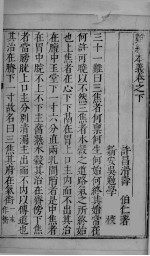 難經本義卷之下
許昌滑壽 伯仁著
新安吳勉學 校
三十一難曰三焦者何稟何生何始何終其治常在
何許可曉以不然三焦者水穀之道路氣之所終始
也上焦者在心下下膈在胃上口主內而不出其治
在膻中玉堂下一寸六分直兩乳間陷者是中焦者
在胃中脘不上不下主腐熟水穀其治在臍傍下焦
者當膀胱上口主分別清濁主出而不內以傳道也
其治在臍下一寸故名曰三焦其府在氣街一本作衝